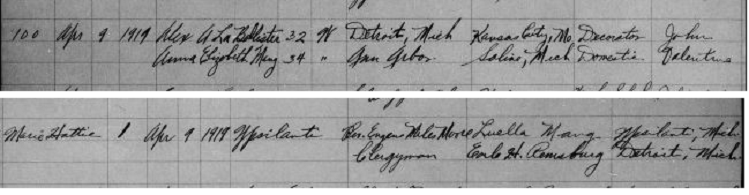 100 Apr 9 1919 Alex A La Hollister 32 W Detroit, Mich Kansas City, Mo Decorator John
Anna Elizabeth Mang 34 " Ann Arbor Saline, Mich Domestic Valentine
Marie Hattie 1 Apr 9 1919 Ypsilanti Rev. Eugene Miles Moore Luella Mang Ypsilanti, Mich
Clergyman Earle H. Remsburg Detroit, Mich.